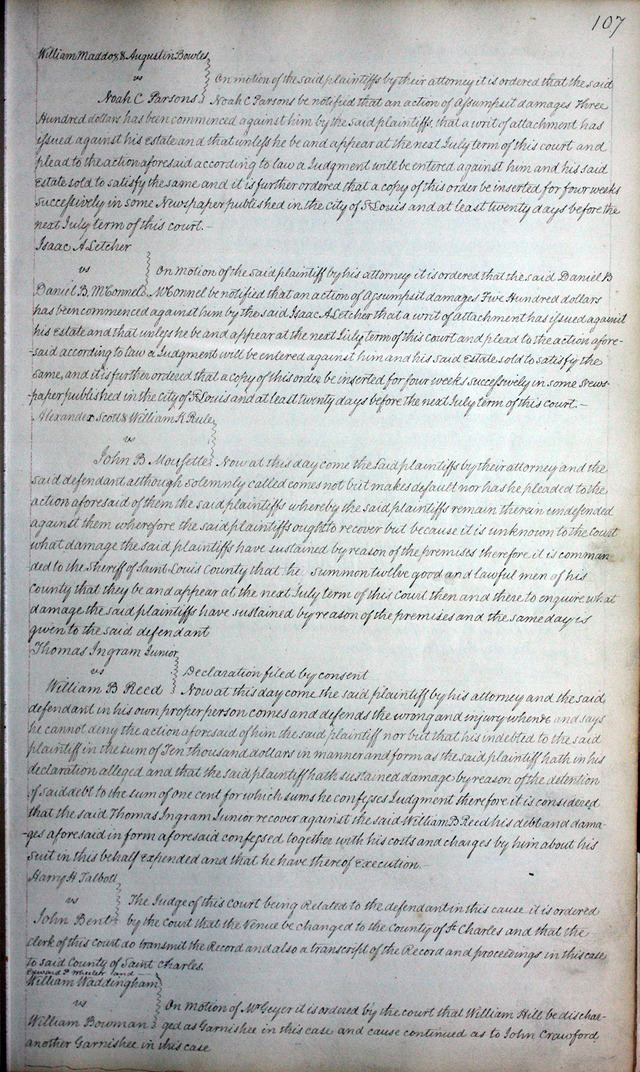 107
William Maddox & Augustin Bowles
vs On motion of the said plaintiffs by their attorney it is ordered that the said
Noah C Parsons Noah C Parsons be notified that an action of Assumpsit damages Three
Hundred dollars has been commenced against him by the said plaintiffs, that a writ of attachment has
issued against his estate and that unless he be and appear at the next July term of this court and
plead to the action aforesaid according to law a Judgment will be entered against him and his said
Estate sold to satisfy the same and it is further ordered that a copy of this order be inserted for four weeks
successively in some Newspaper published in the city of St Louis and at least twenty days before the
next July term of this court.-
Isaac A Letcher
vs On motion of the said plaintiff by his attorney it is ordered that the said Daniel B
Daniel B. McConnel McConnel be notified that an action of Assumpsit damages Five Hundred dollars
has been commenced against him by the said Isaac A Letcher that a writ of attachment has issued against
his Estate and that unless he be and appear at the next July term of this court and plead to the action afore-
-said according to law a Judgment will be entered against him and his said Estate sold to satisfy the
same, and it is further ordered that a copy of this order be inserted for four weeks successively in some News-
-paper published in the city of St Louis and at least twenty days before the next July term of this court.-
Alexander Scott & William K Rule
vs
John B Moufette Now at this day come the said plaintiffs by their attorney and the
said defendant although solemnly called comes not but makes default nor has he pleaded to the
action aforesaid of them the said plaintiffs whereby the said plaintiffs remain therein undefended
against them wherefore the said plaintiffs ought to recover but because it is unknown to the Court
what damage the said plaintiffs have sustained by reason of the premises therefore it is comman-
ded to the Sheriff of Saint Louis County that he summon twelve good and lawful men of his
County that they be and appear at the next July term of this Court then and there to enquire what
damage the said plaintiffs have sustained by reason of the premises and the same day is
given to the said defendant
Thomas Ingram Junior
vs Declaration filed by consent
William B Reed Now at this day come the said plaintiff by his attorney and the said
defendant in his own proper person comes and defends the wrong and injury when &c and says
he cannot deny the action aforesaid of him the said plaintiff nor but that his indebted to the said
plaintiff in the sum of Ten thousand dollars in manner and form as the said plaintiff hath in his
declaration alleged and that the said plaintiff hath sustained damage by reason of the detention
of said debt to the sum of one cent for which sums he confesses Judgment therefore it is considered
that the said Thomas Ingram Junior recover against the said William B Reed his debt and dama-
-ges aforesaid in form aforesaid confessed together with his costs and charges by him about his
suit in this behalf expended and that he have thereof Execution.-
Harry H Talbott
vs The Judge of this court being Related to the defendant in this cause it is ordered
John Bent by the court that the Venue be changed to the County of St Charles and that the
clerk of this court do transmit the Record and also a transcript of the Record and proceedings in this case
to said County of Saint Charles.
Edward P Wheeler and
William Waddingham
vs On motion of Mr Geyer it is ordered by the court that William Hill be dischar-
William Bowman ged as Garnishee in this case and cause continued as to John Crawford
another Garnishee in this case